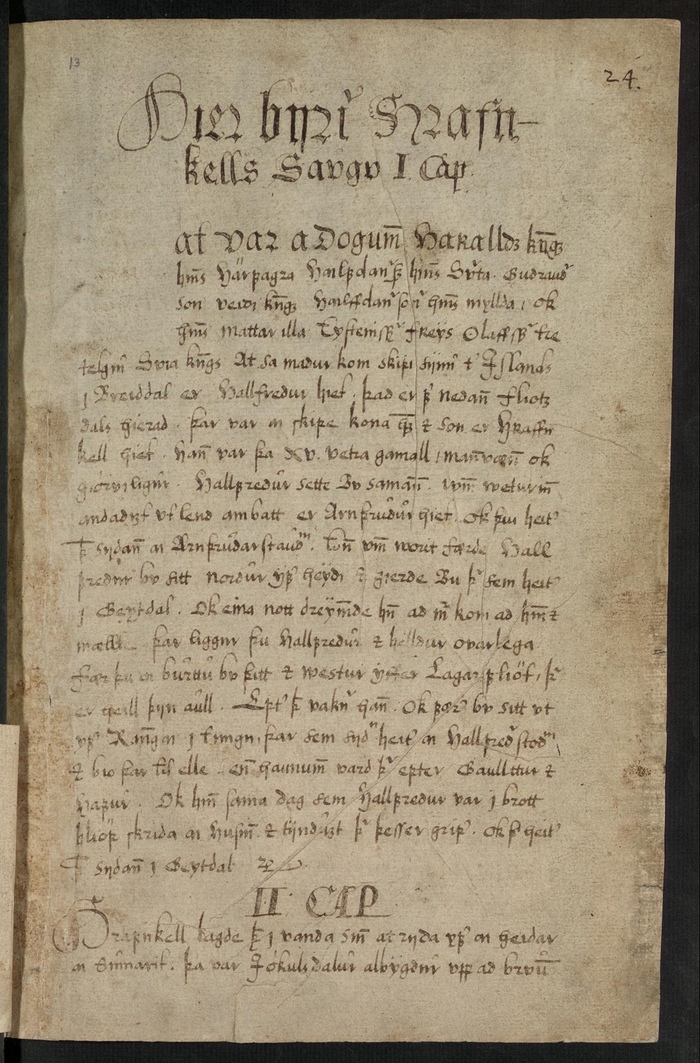 13
24.
Hier byriʼ Hrafn-
kells Saugu I Cap
at var a Dogum̄ Haralldz kn̄gz
hm̄s Hárfagra Halfdan hm̄s Suʼta. Gudraud
son veidi kn̄gz Halffdan hm̄s millda, ok
hm̄s mattar illa Eysteins freys Olaffs tre
telgiu Suia kn̄gs At sa madur kom skipi sijnu t Jslands
j Breiddal er Hallfredur hiet. þad er fʼ nedan̄ fliotz
dals hierad. þar var a skipe kona hs̄ & son er Hraffn
kell hiet. han̄ var þa XV. vetra gamall, man̄væn̄ ok
giörviligur. Hallfredur sette Bu saman̄. vm̄ veturin̄
andadizt vt lend ambatt er Arnþrudur hiet. Ok þui heitʼ
þʼ sijdan̄ a Arnþrudarstaudm̄. En̄ vm̄ vorit færde Hall
fredur bu sitt nordur yfʼ heydi & gierde Bu þʼ sem heitʼ
j Geytdal. Ok eina nott dreymde hn̄ ad mʼ kom ad hm̄ &
mællti. þar liggur þu Hallfredur & helldur ovarlega
fær þu a burttu bu þitt & westur yffer Lagarfliöt, þʼ
er heill þijn aull. Eptʼ þʼ vaknʼ han̄. Ok færʼ bu sitt vt
yfʼ Rang a j tungu, þar sem sijdn̄ heitʼ a Hallfredʼstodm̄,
& bio þar til elle. en̄ haunum̄ vard þʼ epter Gaulltur &
hafur. Ok hin̄ sama dag sem Hallfredur var j brott
hliöp skrida a husin̄. & tijnduzt þʼ þesser gripʼ. Ok þʼ heitʼ
þʼ sijdan̄ j Geytdal
II CAP
Hrafnkell lagde þʼ j vanda sin̄ at rijda yfʼ a heidar
a sumarit. þa var Jökulsdalur albygdur vpp ad bruū